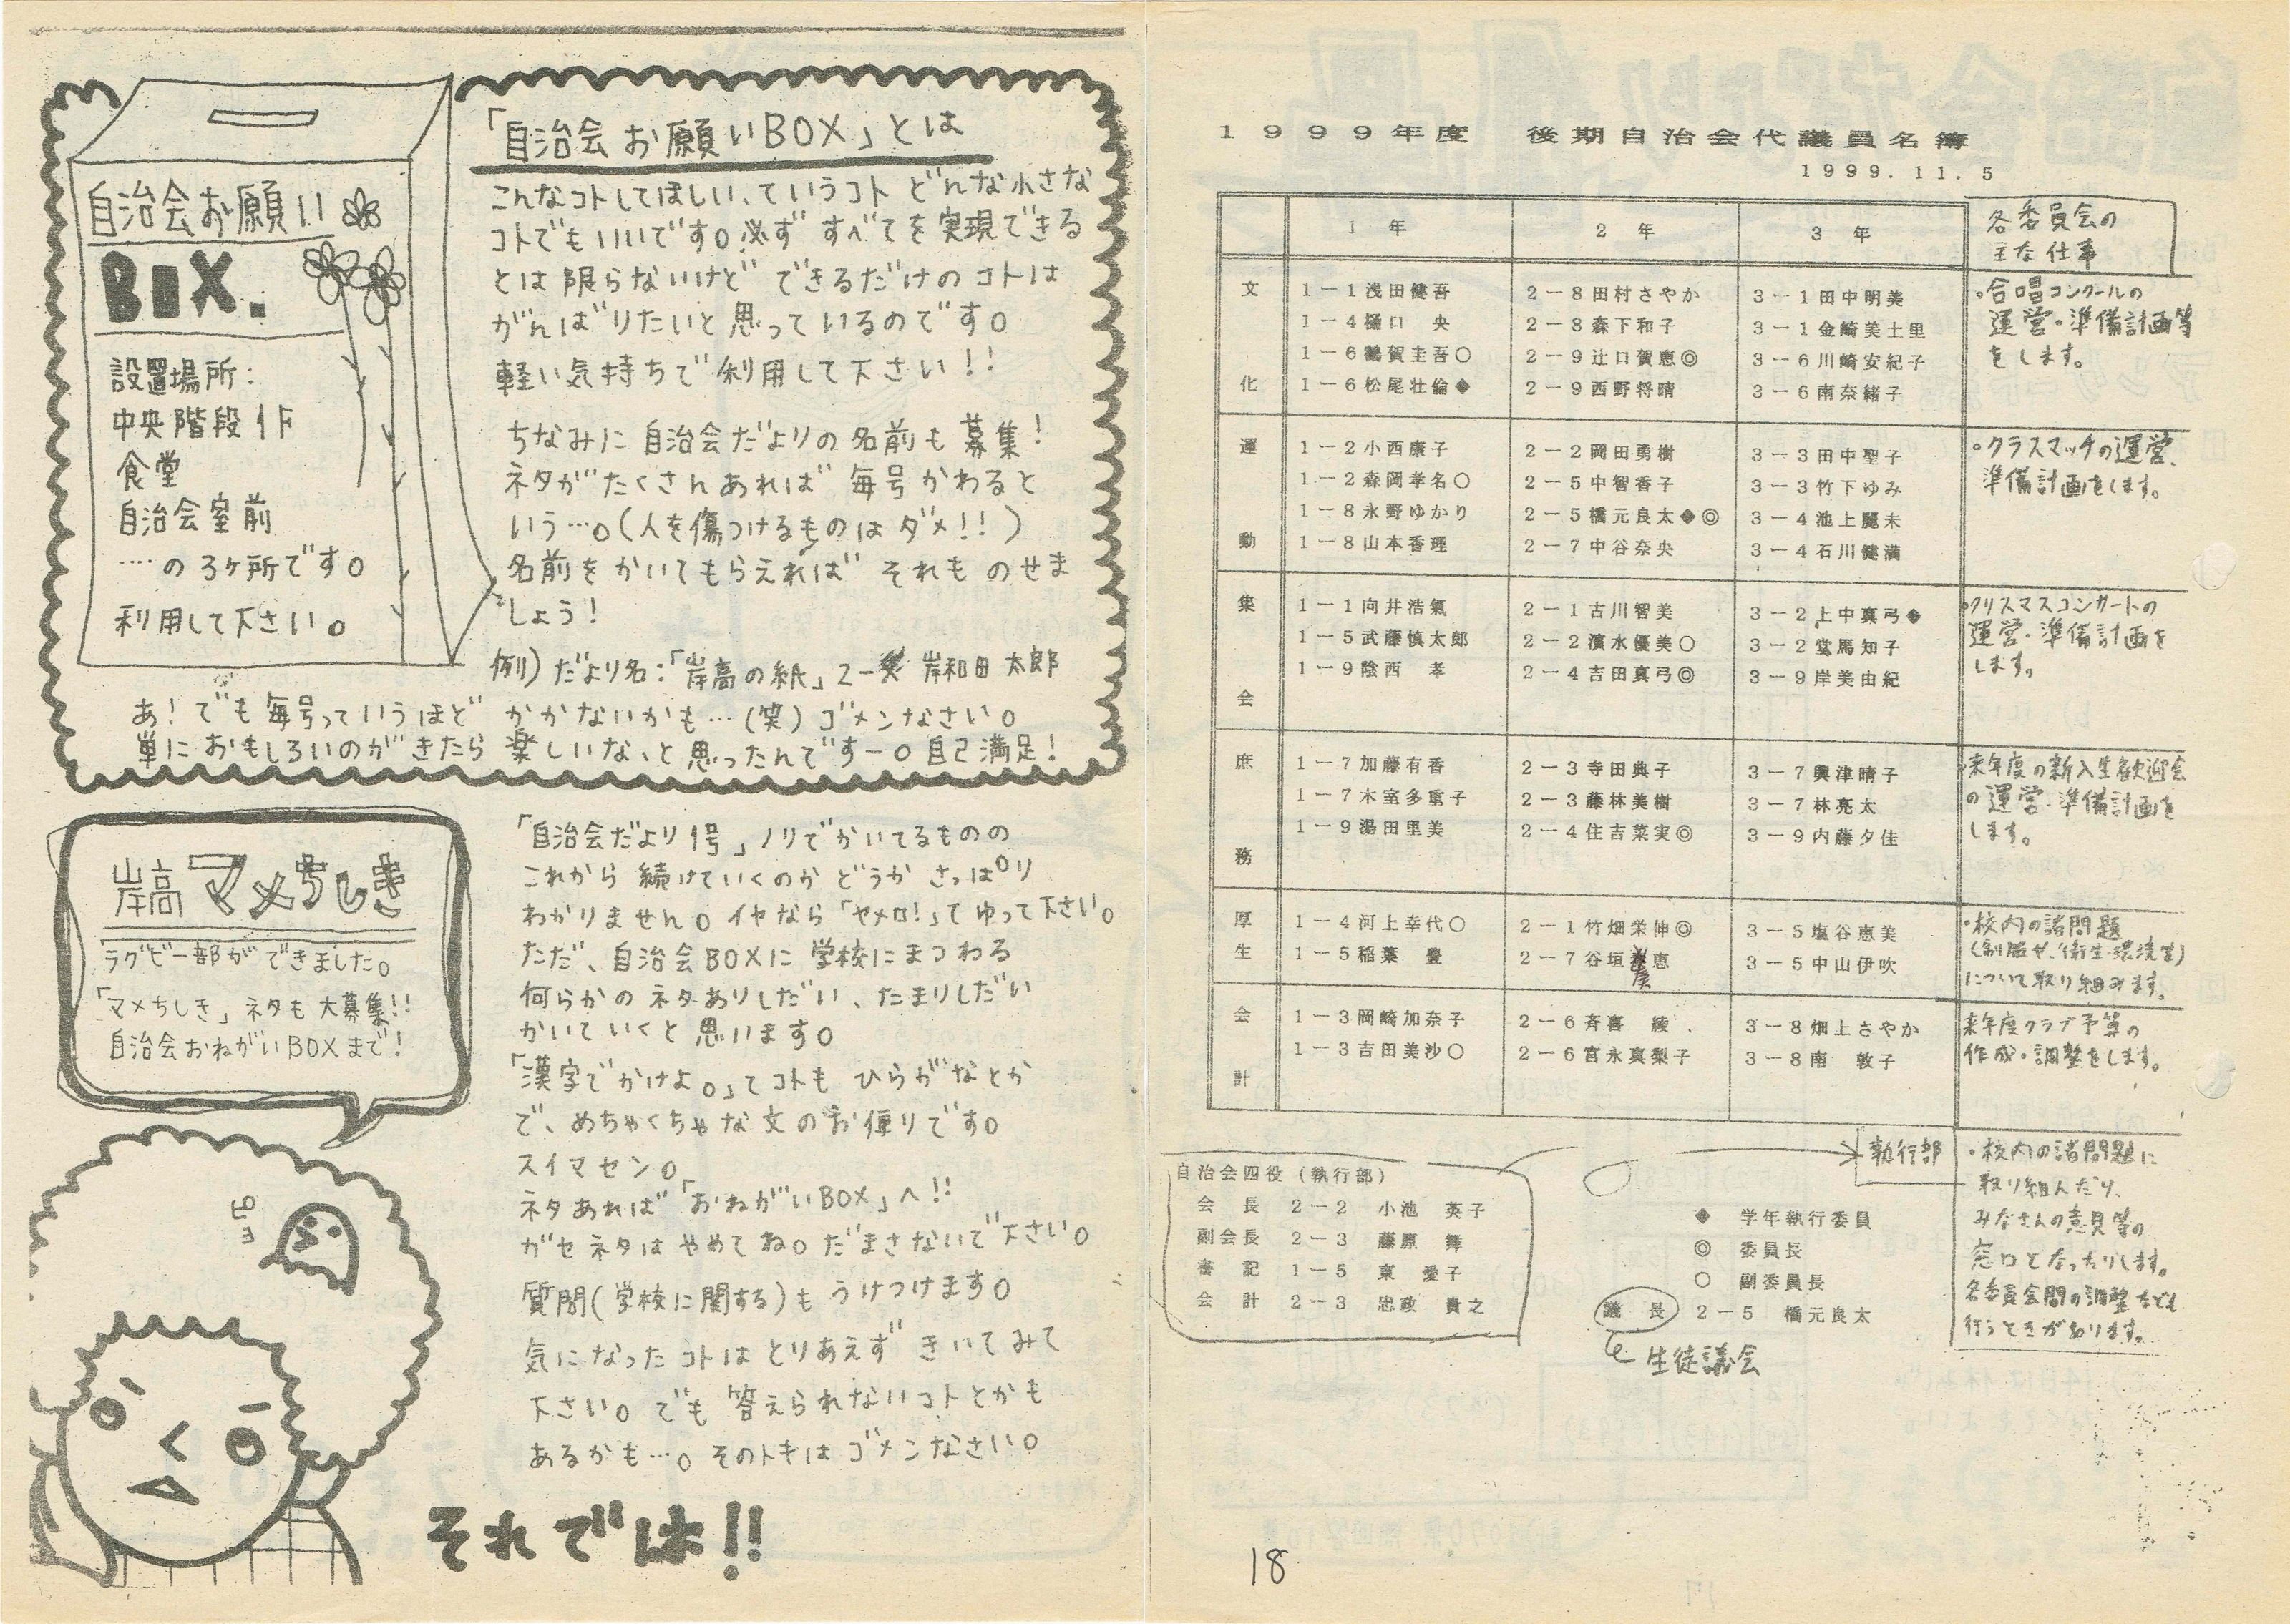 自治会お願い
BOX.
設置場所:
中央階段1F
食堂
自治会室前
…の3ケ所です。
利用して下さい。
「自治会お願いBOX」とは
こんなコトしてほしい、ていうコト どんな小さな
コトでもいいです。必ず すべてを実現できる
とは限らないけど できるだけのコトは
がんばりたいと思っているのです。
軽い気持ちで利用して下さい!!
ちなみに自治会だよりの名前も募集!
ネタがたくさんあれば 毎号かわると
いう…。(人を傷つけるものはダメ!!)
名前をかいてもらえれば それも のせま
しょう!
例)だより名:「岸高の紙」2-  岸和田 太郎
あ!でも毎号っていうほど かかないかも…(笑)ゴメンなさい。
単におもしろいのがきたら楽しいな、と思ったんですー。自己満足!
岸高マメちしき
ラグビー部ができました。
「マメちしき」ネタも大募集!!
自治会おねがいBOXまで!
「自治会だより1号」ノリでかいてるものの
これから続けていくのかどうか さっぱり
わかりません。イヤなら「ヤメロ!」てゆって下さい。
ただ、自治会BOXに学校にまつわる
何らかのネタありしだい、たまりしだい
かいていくと思います。
「漢字でかけよ。」てコトも ひらがなとか
で、めちゃくちゃな文のお便りです。
スイマセン。
ネタあれば「おねがいBOX」へ!!
ガセネタはやめてね。だまさないで下さい。
質問(学校に関する)も うけつけます。
気になったコトはとりあえず きいてみて
下さい。でも答えられないコトとかも
あるかも…。そのトキはゴメンなさい。
それでは!!
1999年度 後期自治会代議員名簿
1999.11.5
1年 2年 3年 各委員会の
主な仕事
文化
1-1浅田健吾 2-8田村さやか 3-1田中明美
1-4樋口 央 2-8森下和子 3-1金崎美土里
1-6鶴賀圭吾○ 2-9辻口賀恵◎ 3-6川崎安紀子
1-6松尾壮倫◆ 2-9西野将晴 3-6南奈緒子
・合唱コンクールの
運営・準備計画等
をします。
運動
1-2小西康子 2-2岡田勇樹 3-3田中聖子
1-2森岡孝名○ 2-5中智香子 3-3竹下ゆみ
1-8永野ゆかり 2-5橋元良太◆◎ 3-4池上麗未
1-8山本香理 2-7中谷奈央 3-4石川健満
・クラスマッチの運営、
準備計画をします。
集会
1-1向井浩氣 2-1古川智美 3-2上中真弓◆
1-5武藤慎太郎 2-2濱水優美○ 3-2堂馬知子
1-9陰西 孝 2-4吉田真弓◎ 3-9岸美由紀
・クリスマスコンサートの
運営・準備計画を
します。
庶務
1-7加藤有香 2-3寺田典子 3-7興津晴子
1-7木室多重子 2-3藤林美樹 3-7林亮太
1-9湯田里美 2-4住吉菜実◎ 3-9内藤夕佳
・来年度の新入生歓迎会
の運営・準備計画を
します。
厚生
1-4河上幸代○ 2-1竹畑栄伸◎ 3-5塩谷恵美
1-5稲葉 豊 2-7谷垣 恵 3-5中山伊吹
・校内の諸問題
(制服や、衛生・環境等)
について取り組みます。
会計
1-3岡崎加奈子 2-6斉喜 綾 3-8畑上さやか
1-3吉田美沙○ 2-6富永真梨子 3-8南 敦子
来年度クラブ予算の
作成・調整をします。
自治会四役(執行部)
会 長 2-2 小池 英子
副会長 2-3 藤原 舞
書 記 1-5 東 愛子
会 計 2-3 忠政 貴之
◆ 学年執行委員
◎ 委員長
○ 副委員長
議 長 2-5 橋元良太
生徒議会
執行部
・校内の諸問題に
取り組んだり、
みなさんの意見等の
窓口となったりします。
各委員会間の調整なども
行うときがあります。
18